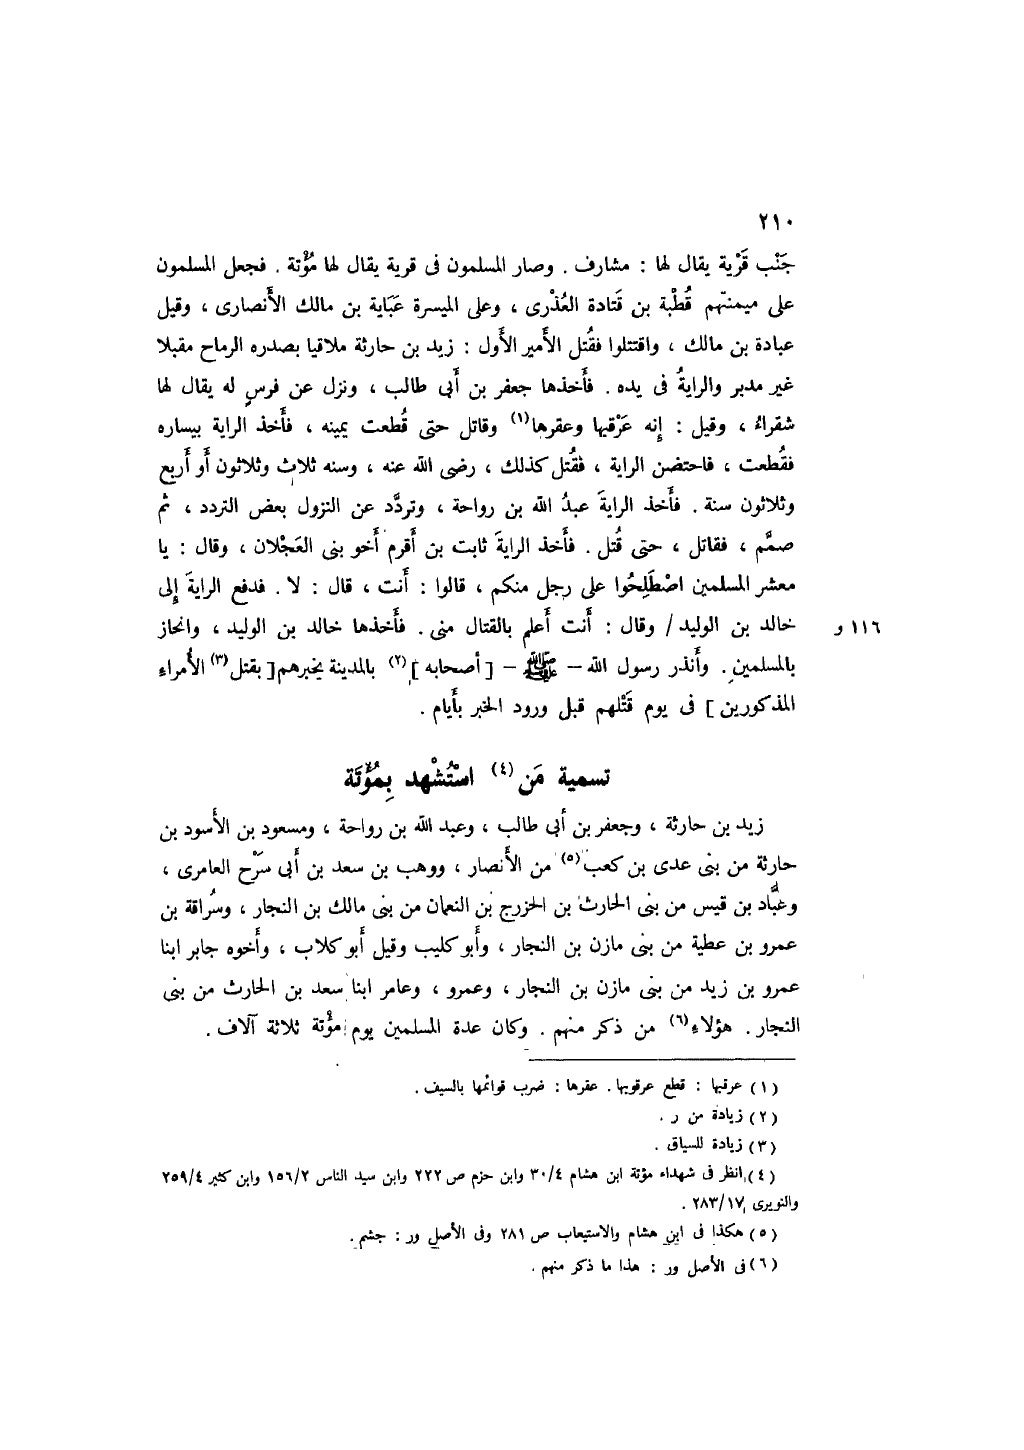 ٢١٠
جَنْب قَرْية يقال لها : مشارف . وصار المسلمون فى قرية يقال لها مُؤْتة . فجعل المسلمون
على ميمنتهم قُطْبة بن قَتادة العُذْرى ، وعلى الميسرة عَبَاية بن مالك الأَنصارى ، وقيل
عبادة بن مالك ، واقتتلوا فقُتل الأَمير الأَول : زيد بن حارثة ملاقيا بصدره الرماح مقبلا
غير مدبر والرايةُ فى يده . فأَخذها جعفر بن أَبى طالب ، ونزل عن فرسٍ له يقال لها
شقراءُ ، وقيل : إنه عَرْقبها وعقرها(١) وقاتل حتى قُطعت يمينه ، فأَخذ الراية بيساره
فقُطعت ، فاحتضن الراية ، فقُتل كذلك ، رضى الله عنه ، وسنه ثلاث وثلاثون أَو أَربع
وثلاثون سنة . فأَخذ الرايةَ عبدُ الله بن رواحة ، وتردَّد عن النزول بعض التردد ، ثم
صمَّم ، فقاتل ، حتى قُتل . فأَخذ الرايةَ ثابت بن أَقرم أَخو بنى العَجْلان ، وقال : يا
معشر المسلمين اصْطَلِحُوا على رجل منكم ، قالوا : أَنت ، قال : لا . فدفع الرايةَ إِلى
خالد بن الوليد / وقال : أَنت أَعلم بالقتال منى . فأَخذها خالد بن الوليد ، وانحاز
١١٦ و
بالمسلمين . وأَنذر رسول الله – ﷺ – [ أصحابه ](٢) بالمدينة يخبرهم [ بقتل(٣) الأُمراء
المذكورين ] فى يوم قَتْلهم قبل ورود الخبر بأَيام .
تسمية مَن(٤) اسْتُشْهد بِمُؤْتَة
زيد بن حارثة ، وجعفر بن أَبى طالب ، وعبد الله بن رواحة ، ومسعود بن الأَسود بن
حارثة من بنى عدى بن كعب(٥) من الأَنصار ، ووهب بن سعد بن أَبى سَرْح العامرى ،
وعبَّاد بن قيس من بنى الحارث بن الخزرج بن النعمان من بنى مالك بن النجار ، وسُراقة بن
عمرو بن عطية من بنى مازن بن النجار ، وأَبو كليب وقيل أَبو كلاب ، وأَخوه جابر ابنا
عمرو بن زيد من بنى مازن بن النجار ، وعمرو ، وعامر ابنا سعد بن الحارث من بنى
النجار . هؤلاءِ(٦) من ذكر منهم . وكان عدة المسلمين يوم مؤْتة ثلاثة آلاف .
(١) عرقبها : قطع عرقوبها . عقرها : ضرب قوائمها بالسيف .
(٢) زيادة من ر .
(٣) زيادة للسياق .
(٤) انظر فى شهداء مؤتة ابن هشام ٣٠/٤ وابن حزم ص ٢٢٢ وابن سيد الناس ١٥٦/٢ وابن كثير ٢٥٩/٤
والنويرى ٢٨٣/١٧ .
(٥) هكذا فى ابن هشام والاستيعاب ص ٢٨١ وفى الأصل ور : جشم .
(٦) فى الأصل ور : هذا ما ذكر منهم .